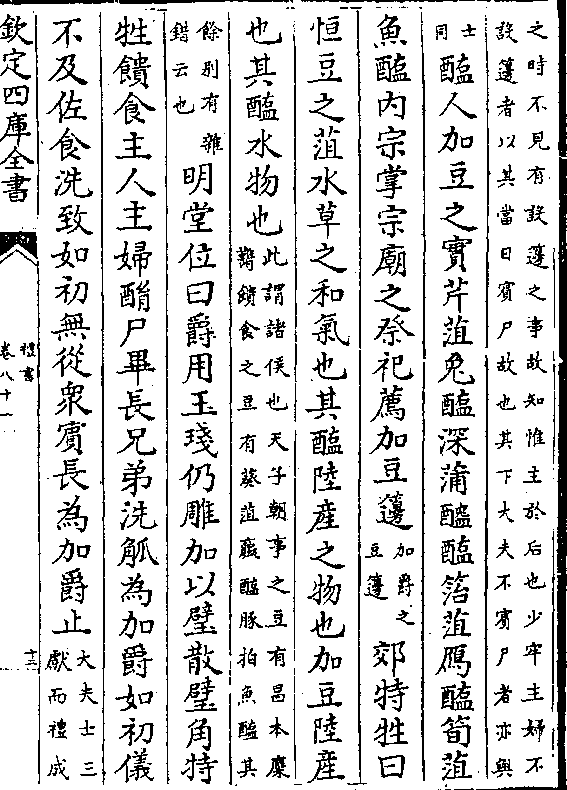 之時不見有設籩之事故知惟主於后也少牢主婦不
設籩者以其當日賓尸故也其下大夫不賓尸者亦與
士
同
醢人加豆之實芹菹兔醢深蒲醓醢箈菹鴈醢筍菹
魚醢内宗掌宗廟之祭祀薦加豆籩
加爵之
豆籩
郊特牲曰
恒豆之菹水草之和氣也其醢陸産之物也加豆陸産
也其醢水物也
此謂諸侯也天子朝事之豆有昌本麋
臡饋食之豆有葵菹蠃醢豚拍魚醢其
餘則有雜
錯云也
明堂位曰爵用玉琖仍雕加以璧散璧角特
牲饋食主人主婦酳尸畢長兄弟洗觚為加爵如初儀
不及佐食洗致如初無從衆賓長為加爵止
大夫士三
獻而禮成
欽定四庫全書
禮書
卷八十一
十三